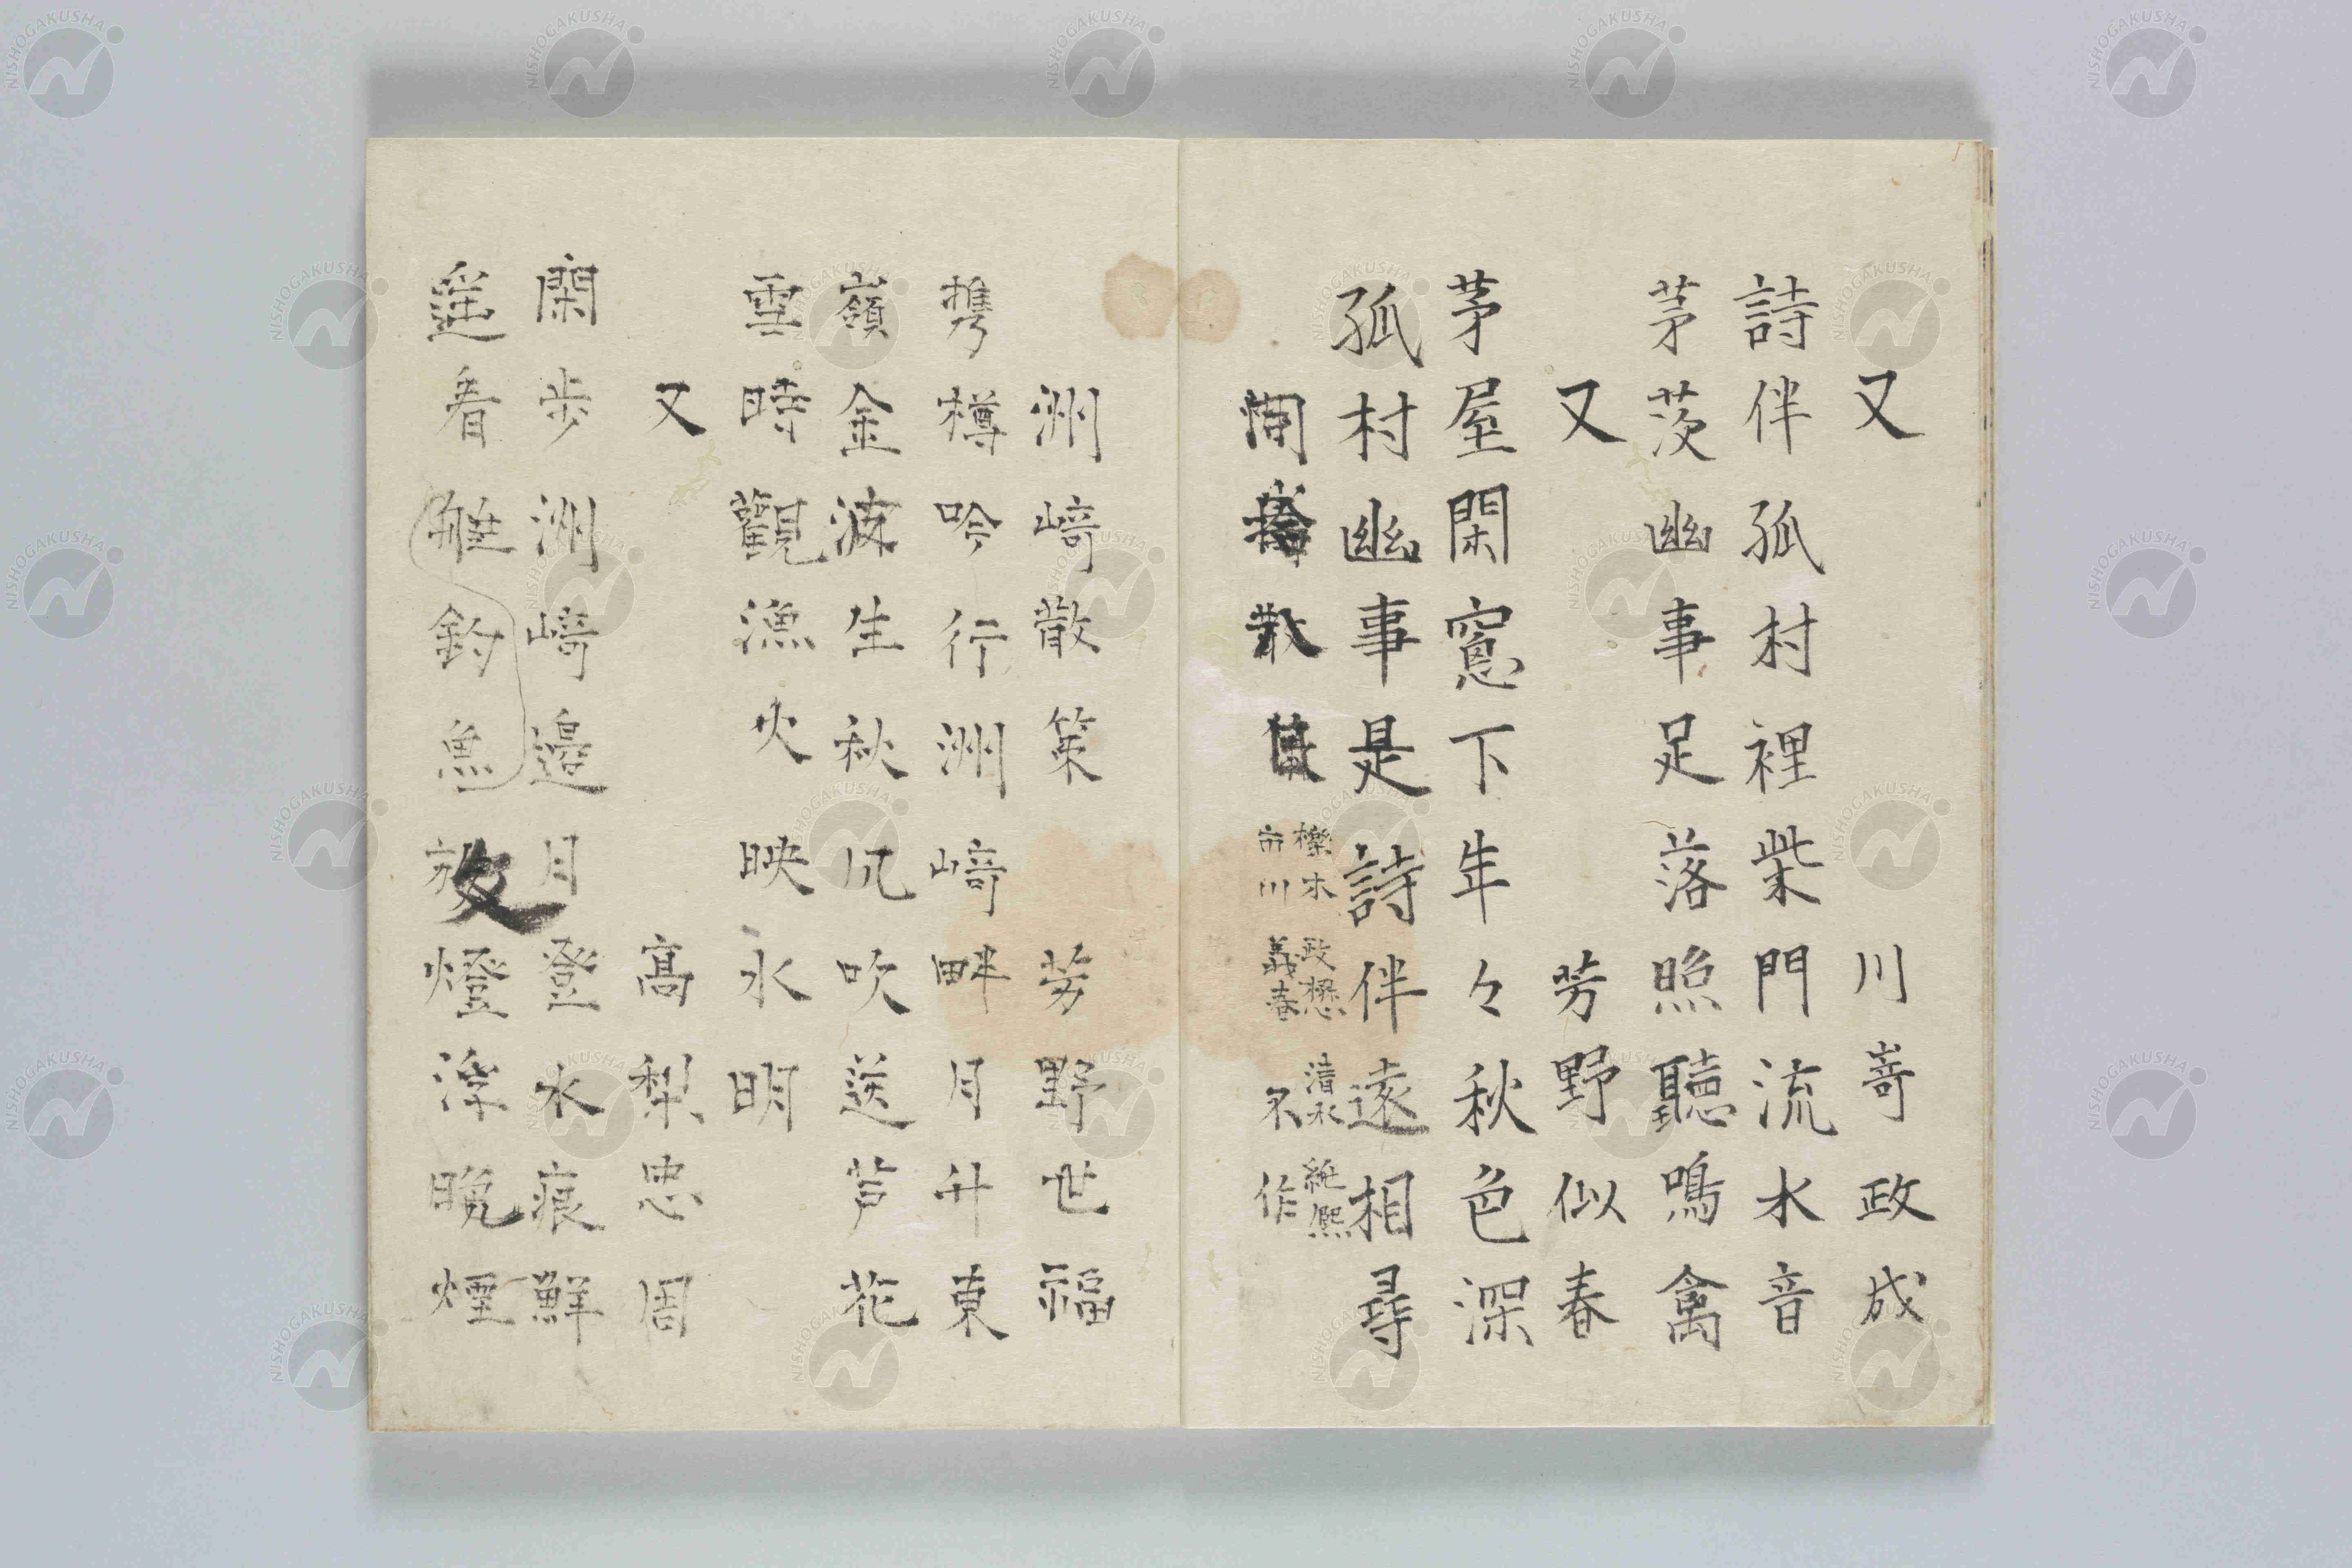 又 川嵜政成
詩伴孤村裡柴門流水音
茅茨幽事足落照聽鳴禽
又 芳野似春
茅屋閑窻下年々秋色深
孤村幽事是詩伴遠相尋
櫟木政懋 清水純熙
市川義春 不作
洲﨑散策 芳野世福
携樽吟行洲﨑畔月升東
嶺金波生秋風吹送芦花
雪時觀漁火映水明
又 高梨忠周
閑步洲﨑邉月登水痕鮮
遥看離釣魚放燈浮晩煙
NISHOGAKUSHA